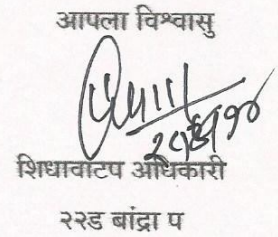 आपला विश्वासु
शिधावाटप अधिकारी
२२ड बांद्रा प